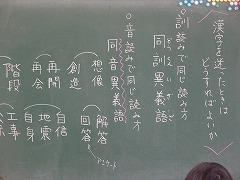 漢字を迷ったときは
どうすればよいか
○訓読みで同じ読み方
同訓異義語
○音読みで同じ読み方
同音異義語
想像
創造
再開
再会
階段
解答
回答
アンケート
自信
地震
自身
工事